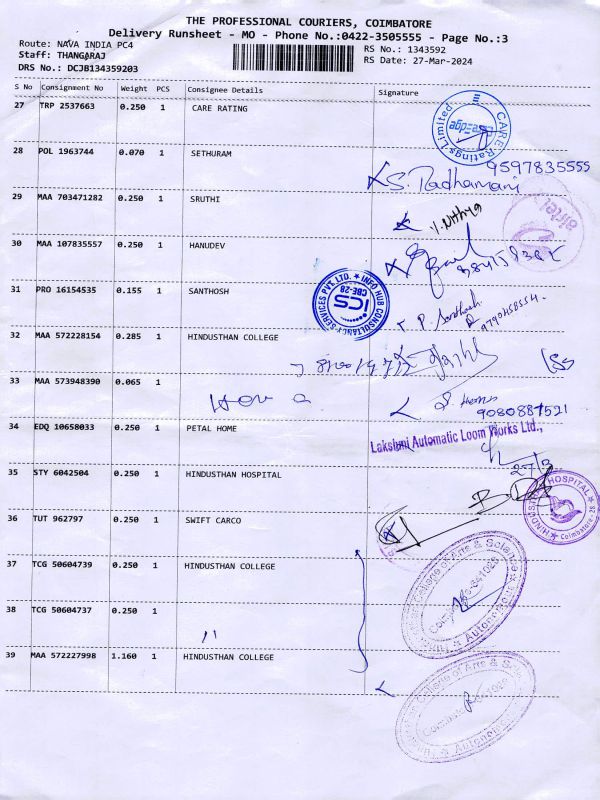 THE PROFESSIONAL COURIERS, COIMBATORE
Delivery Runsheet - MO - Phone No.:0422-3505555 - Page No.:3
Route: NAVA INDIA PC4
RS No.: 1343592
Staff: THANGARAJ
RS Date: 27-Mar-2024
DRS No.: DCJB134359203
S No Consignment No Weight PCS Consignee Details Signature
27 TRP 2537663 0.250 1 CARE RATING
CARE Ratings Limited
28 POL 1963744 0.070 1 SETHURAM
9597835555
S. Radhamani
29 MAA 703471282 0.250 1 SRUTHI
V. Nithya
airtel
30 MAA 107835557 0.250 1 HANUDEV
31 PRO 16154535 0.155 1 SANTHOSH
INFO HUB CONSULTANCY SERVICES PVT. LTD.
ICS
CBE-28
P. Santhosh
32 MAA 572228154 0.285 1 HINDUSTHAN COLLEGE
33 MAA 573948390 0.065 1
9080887521
34 EDQ 10658033 0.250 1 PETAL HOME
Lakshmi Automatic Loom Works Ltd.,
27/3
35 STY 6042504 0.250 1 HINDUSTHAN HOSPITAL
HINDUSTHAN HOSPITAL
Coimbatore - 28
36 TUT 962797 0.250 1 SWIFT CARCO
37 TCG 50604739 0.250 1 HINDUSTHAN COLLEGE
College of Arts & Science
38 TCG 50604737 0.250 1
"
39 MAA 572227998 1.160 1 HINDUSTHAN COLLEGE
College of Arts &